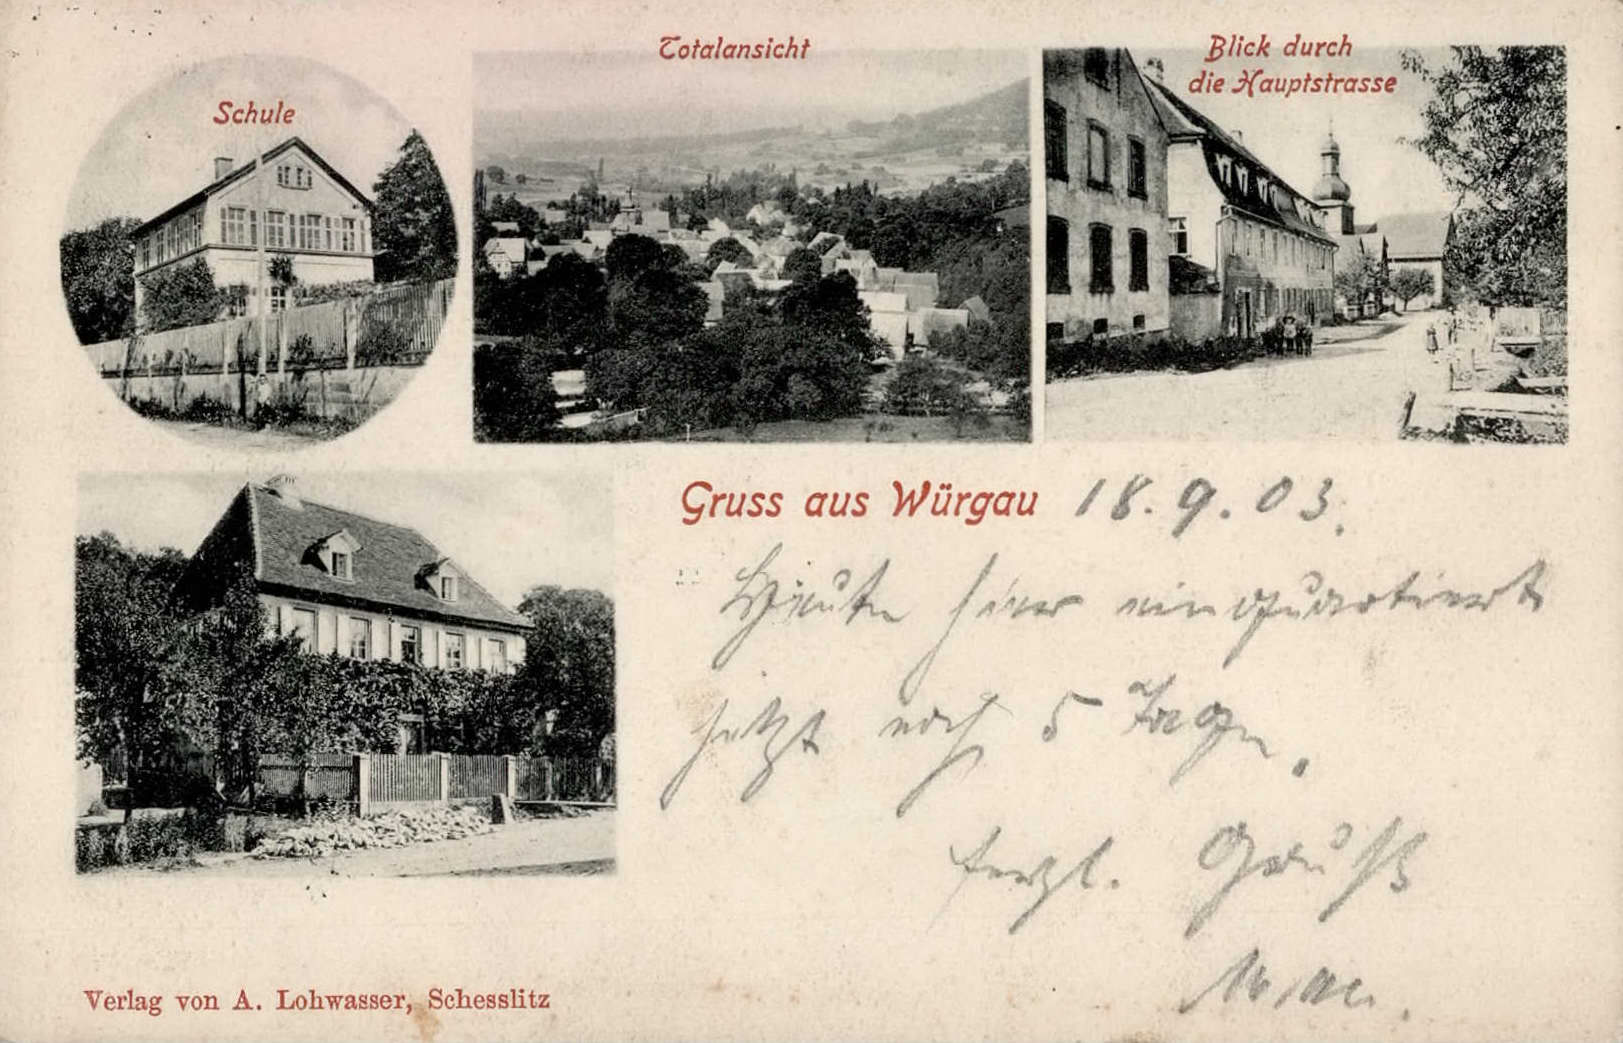 Schule
Totalansicht
Blick durch
die Hauptstrasse
Gruss aus Würgau 18.9.03.
Heute hier einquartiert
jetzt noch 5 Tage.
herzl. Gruß
Verlag von A. Lohwasser, Schesslitz